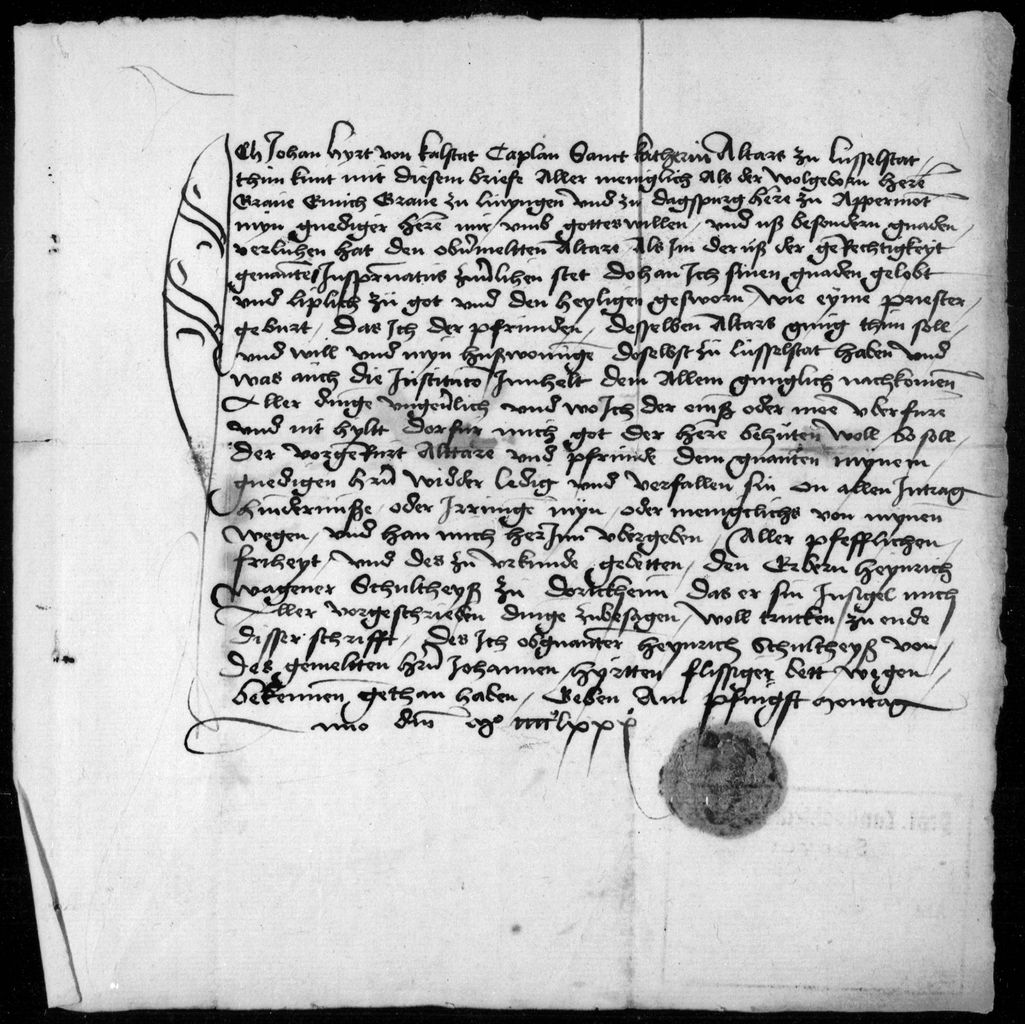 Ich Johan Hyrt von kalstat Caplan Sanct katherin Altars zu lusselstat
thun kunt mit diesem briefe Aller meniglich Als der wolgeborn here
Graue Emich Graue zu linyngen vnd zu dagspurg here zu Appermot
myn gnediger here mir vmb gottes willen vnd uß besondern gnaden
verluhen hat den obůmeltten Altare Als Im der uß der gerechtigkeyt
genantes stet do han Ich sinen gnaden gelobt
vnd liplich zu got vnd den heyligen gesworn wie eyme priester
geburt Das Ich der pfrunden desselben Altars gnug thun soll
vnd will vnd myn hußwonunge doselbst zu lusselstat haben vnd
was auch die Institucio Innhelt dem Allem gnuglich nachkomen
Aller dinge vngeuerlich vnd wo Ich der eins oder mee vberfure
vnd nit hylt dorfur mich got der here behuten woll So soll
der vorgerurt Alttare vnd pfrunde dem gnanten mynem
gnedigen hrn widder ledig vnd verfallen sin on allen Intrag
hindernuße oder Irrunge myn oder meniglichs von mynen
wegen vnd han mich her Inn vbergeben Aller pfefflichen
friheyt vnd des zu vrkunde gebetten den Erbern heynrich
wagener Schultheyß zu dorckheim das er sin Insigel mich
Aller vorgeschrieben dinge zubesagen woll trucken zu ende
disser schrifft Des Ich obgnanter heynrich Schultheyß von
des gemeltten hrn Johannen hyrtten flissiger bett wegen
bekennen gethan haben Geben Am pfingst montag
Anno dm mº iiiiᶜ lxxx